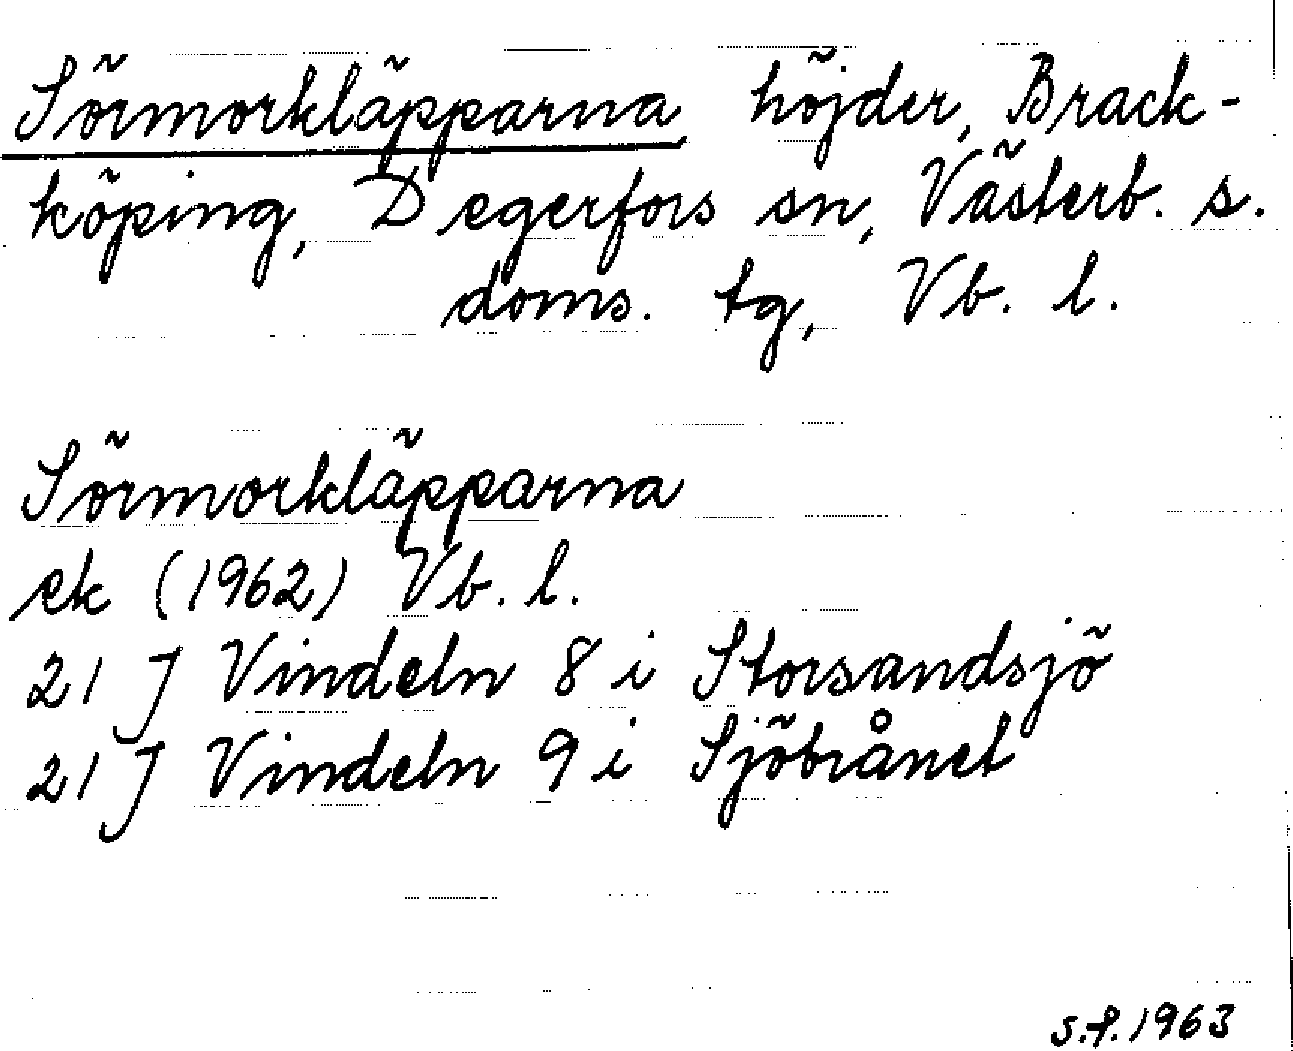 Sörmorkläpparna, höjder, Brack-
köping, Degerfors sn, Västerb. s.
doms. tg, Vb. l.
Sörmorkläpparna
ek (1962) Vb. l.
21 J Vindeln 8 i Storsandsjö
21 J Vindeln 9 i Sjöbrånet
S.f. 1963